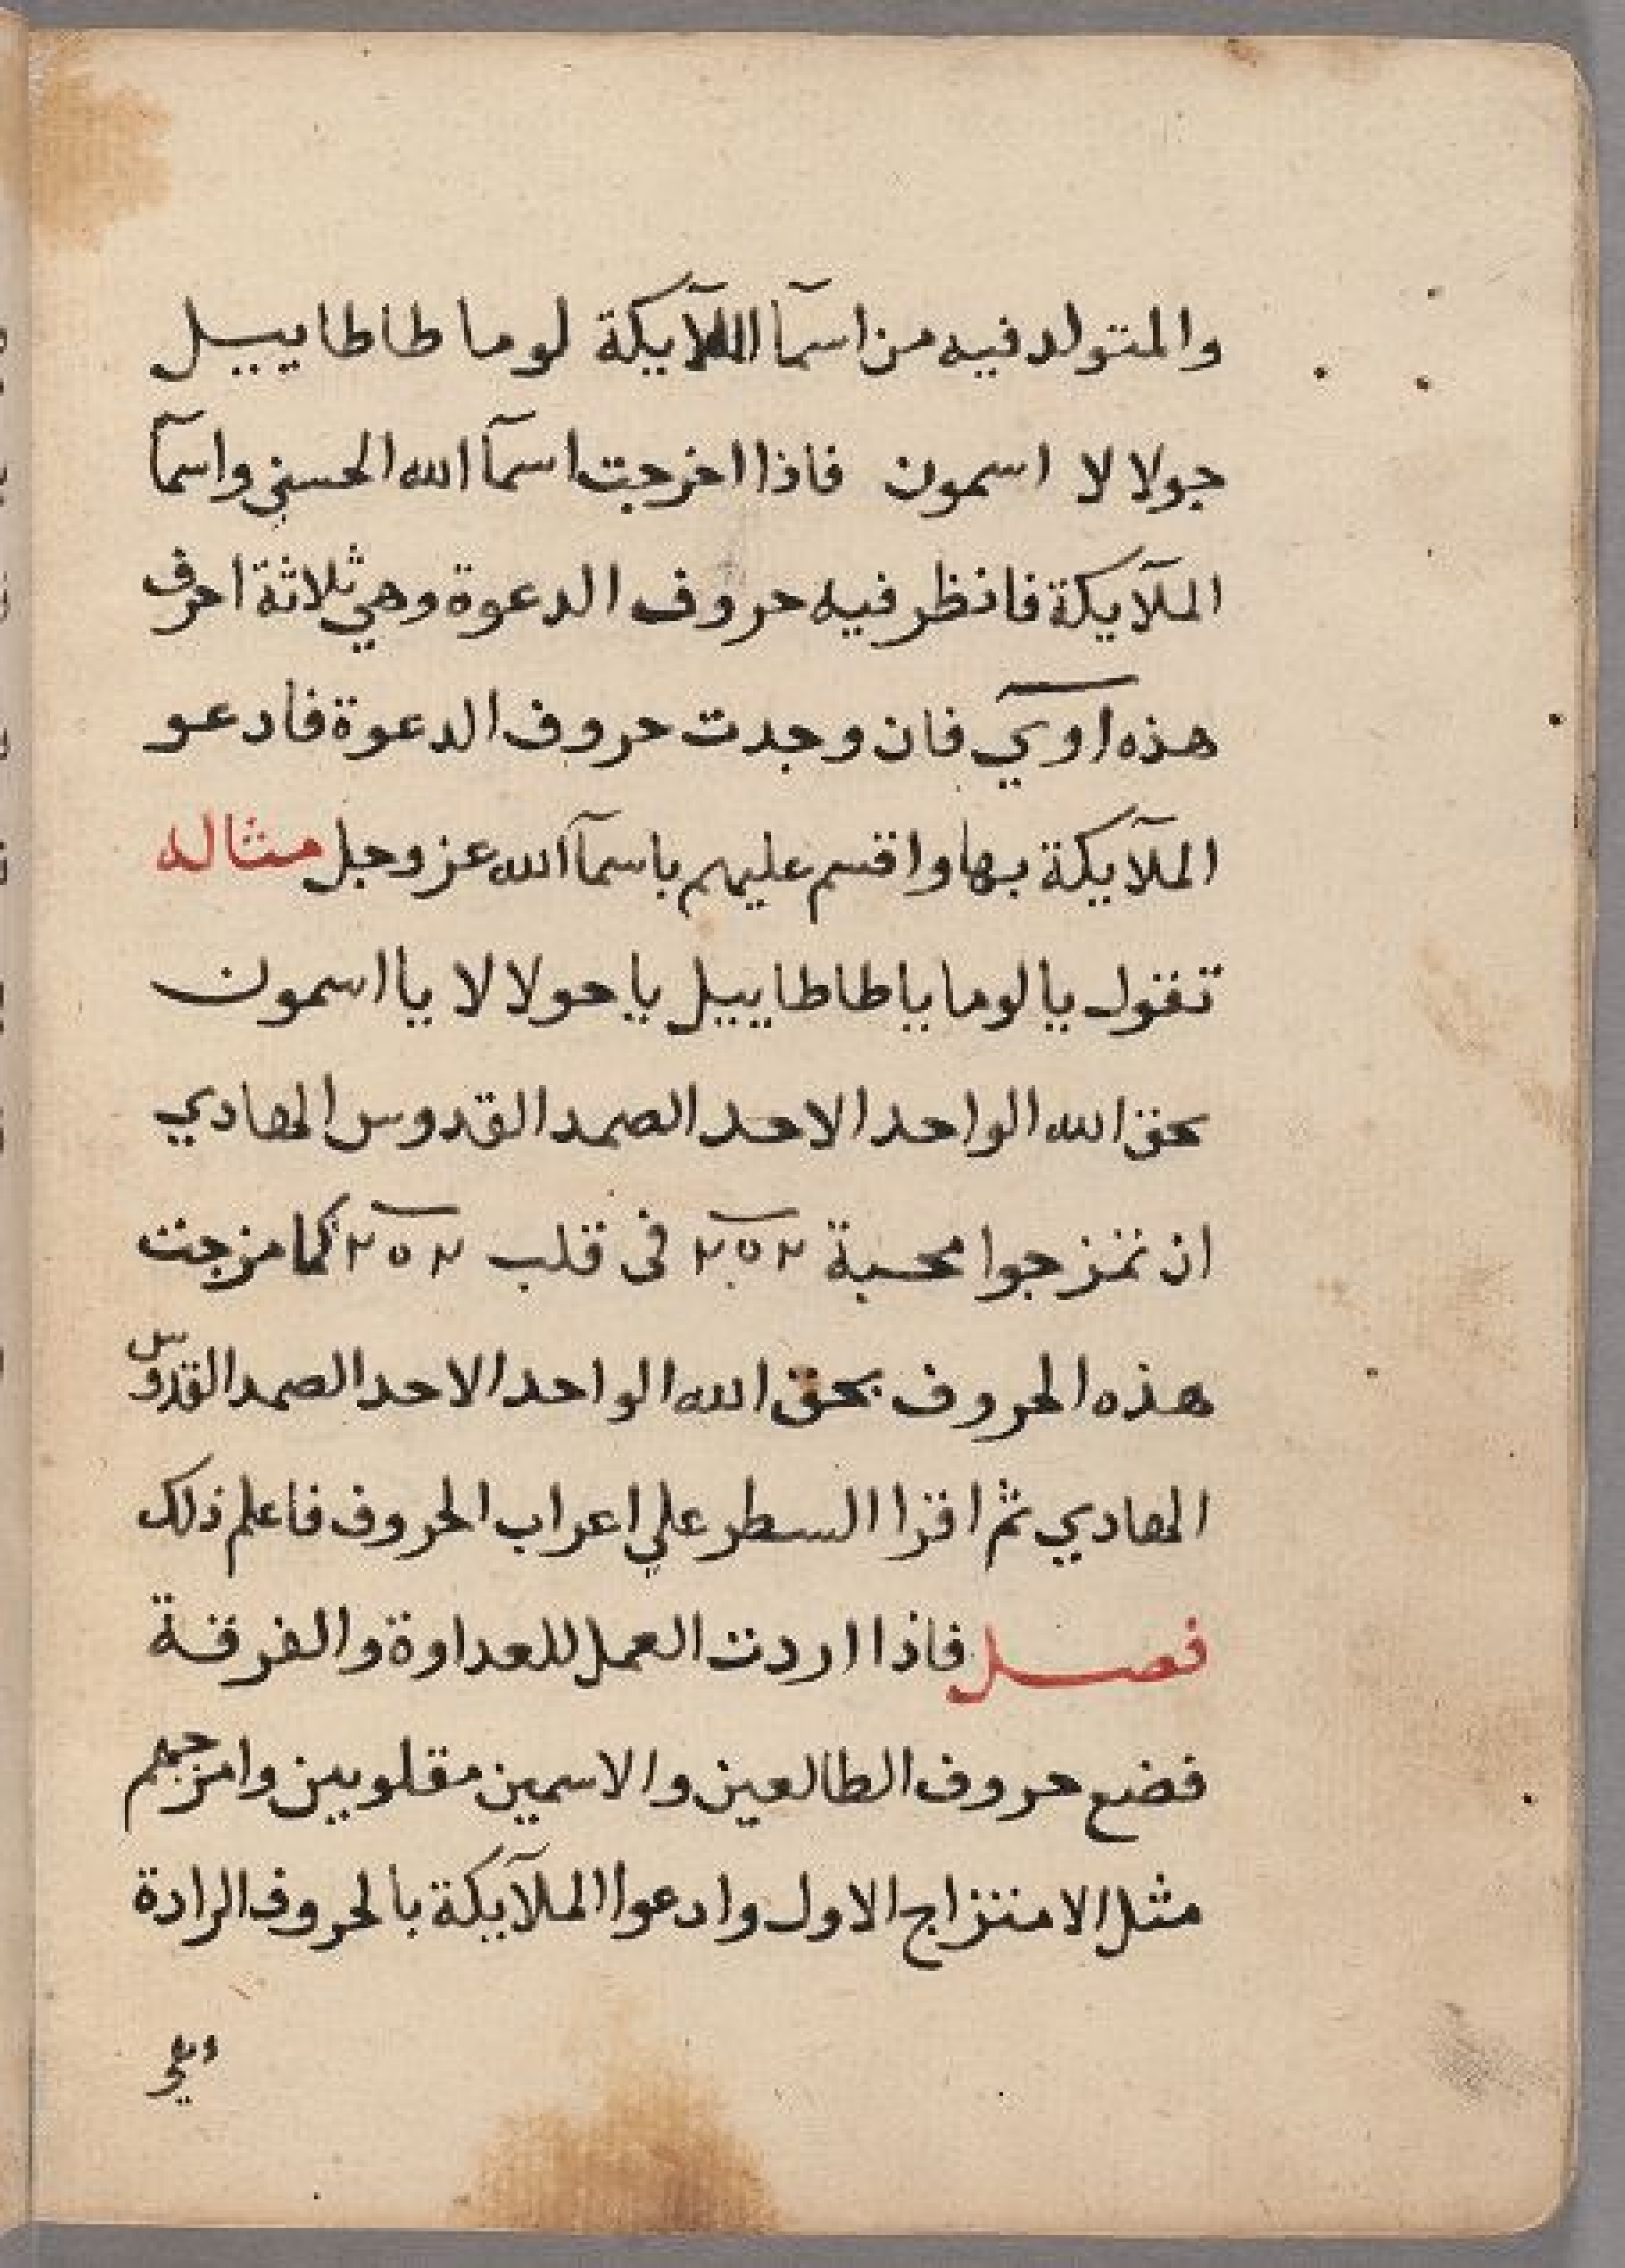 والمتولد فيه من اسمآ الملآيكة لوما طاطاييل
جولا لا اسمون فاذا اخرجت اسمآ الله الحسني واسمآ
الملآيكة فانظر فيه حروف الدعوة وهي ثلاثة احرف
هذه اوي فان وجدت حروف الدعوة فادعو
الملآيكة بها واقسم عليهم باسمآ الله عز وجل مثاله
تقول يا لوما يا طاطاييل يا حولا لا يا اسمون
بحق الله الواحد الاحد الصمد القدوس الهادي
ان تمزجوا محبة ٢٥٢ في قلب ٢٥٢ كما مزجت
هذه الحروف بحق الله الواحد الاحد الصمد القدوس
الهادي ثم اقرا السطر علي اعراب الحروف فاعلم ذلك
فصل فاذا اردت العمل للعداوة والفرقة
فضع حروف الطالعين والاسمين مقلوبين وامزجهم
مثل الامتزاج الاول وادعوا الملآيكة بالحروف الرادة
وهي